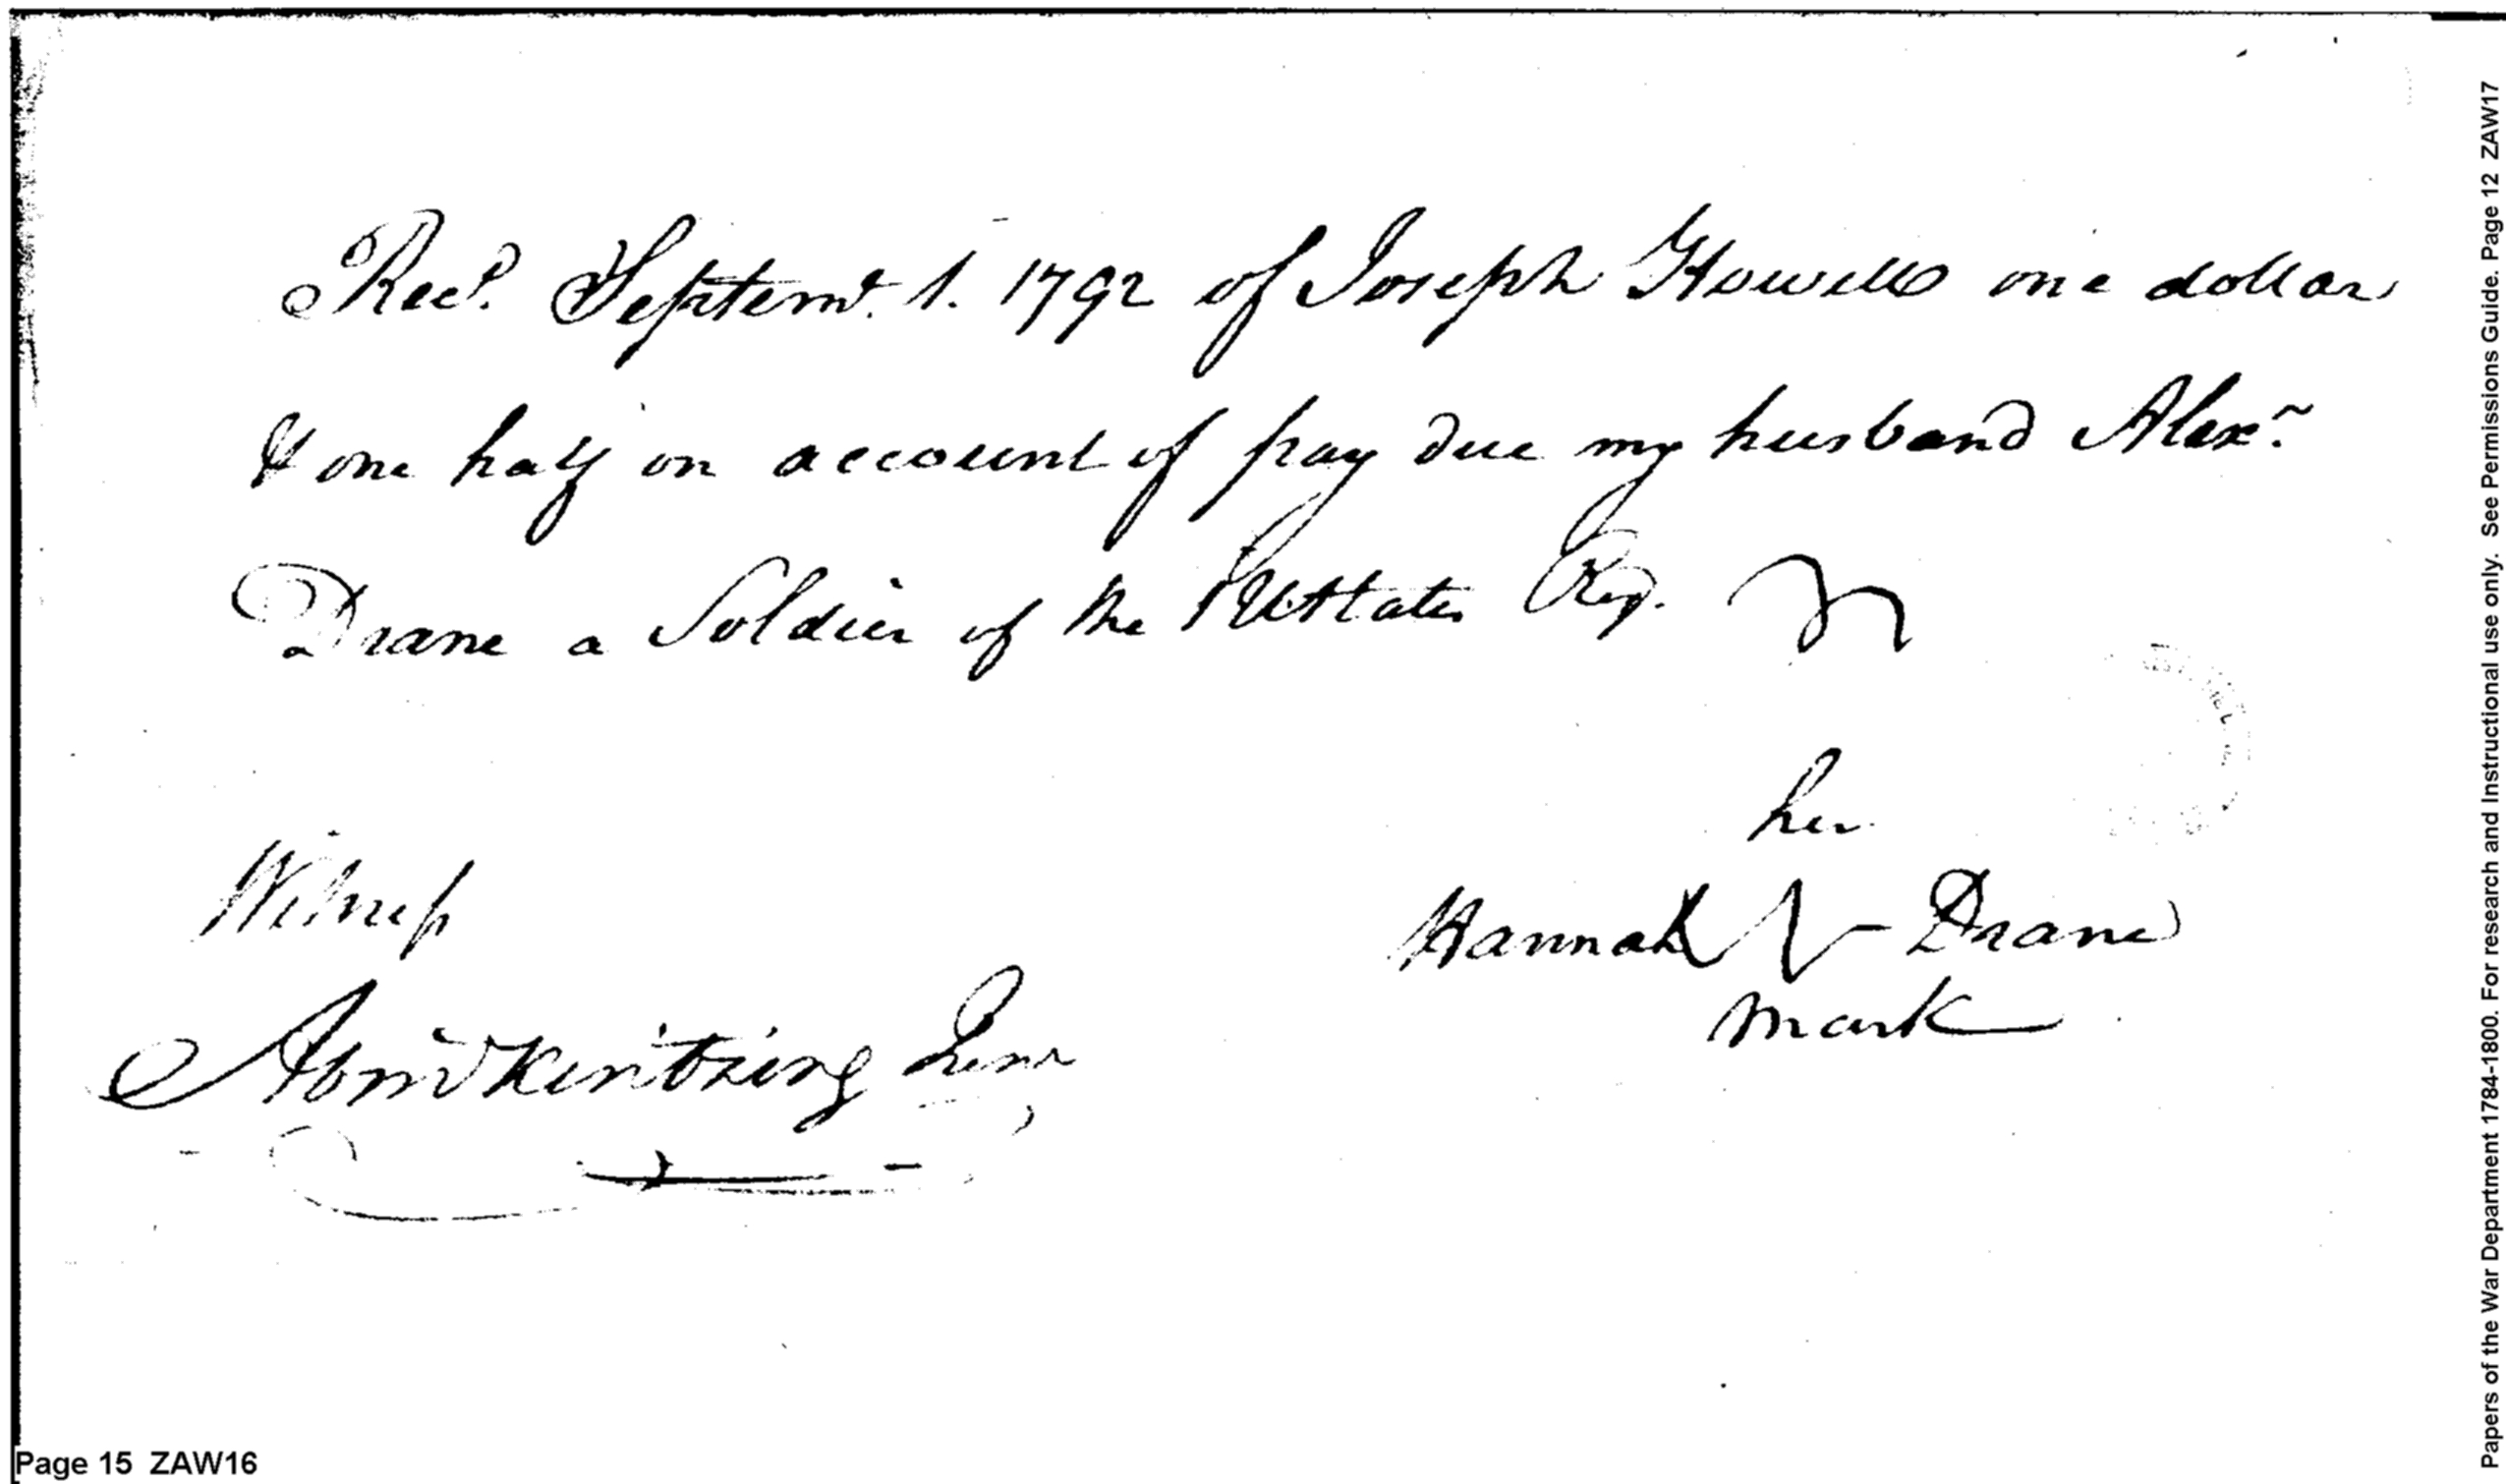 Rec.d Septem.r 1. 1792 of Joseph Howell one dollar
& one half on account of pay due my husband Alex.r
Drane a Soldier of the UStates Reg.
her
Witness
Hannah Drane
mark
Papers of the War Department 1784-1800. For research and Instructional use only. See Permissions Guide. Page 12 ZAW17
Page 15 ZAW16